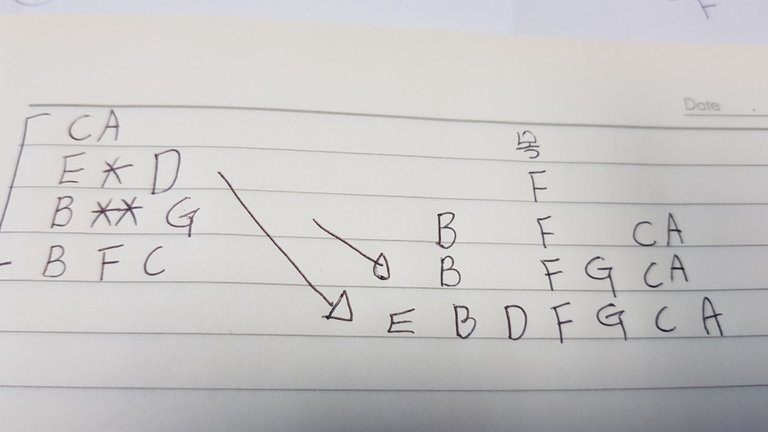 Date .
CA
E * D
B ** G
B F C
F
B F CA
B F G CA
E B D F G C A